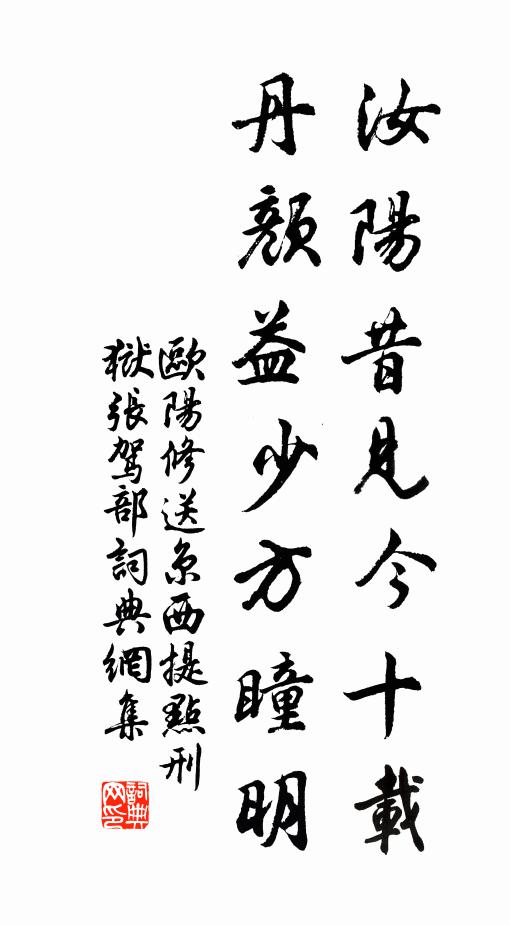 汝陽昔見今十載
丹顏益少方瞳明
歐陽修送京西提點刑
獄張駕部詞典網集
詞典网印